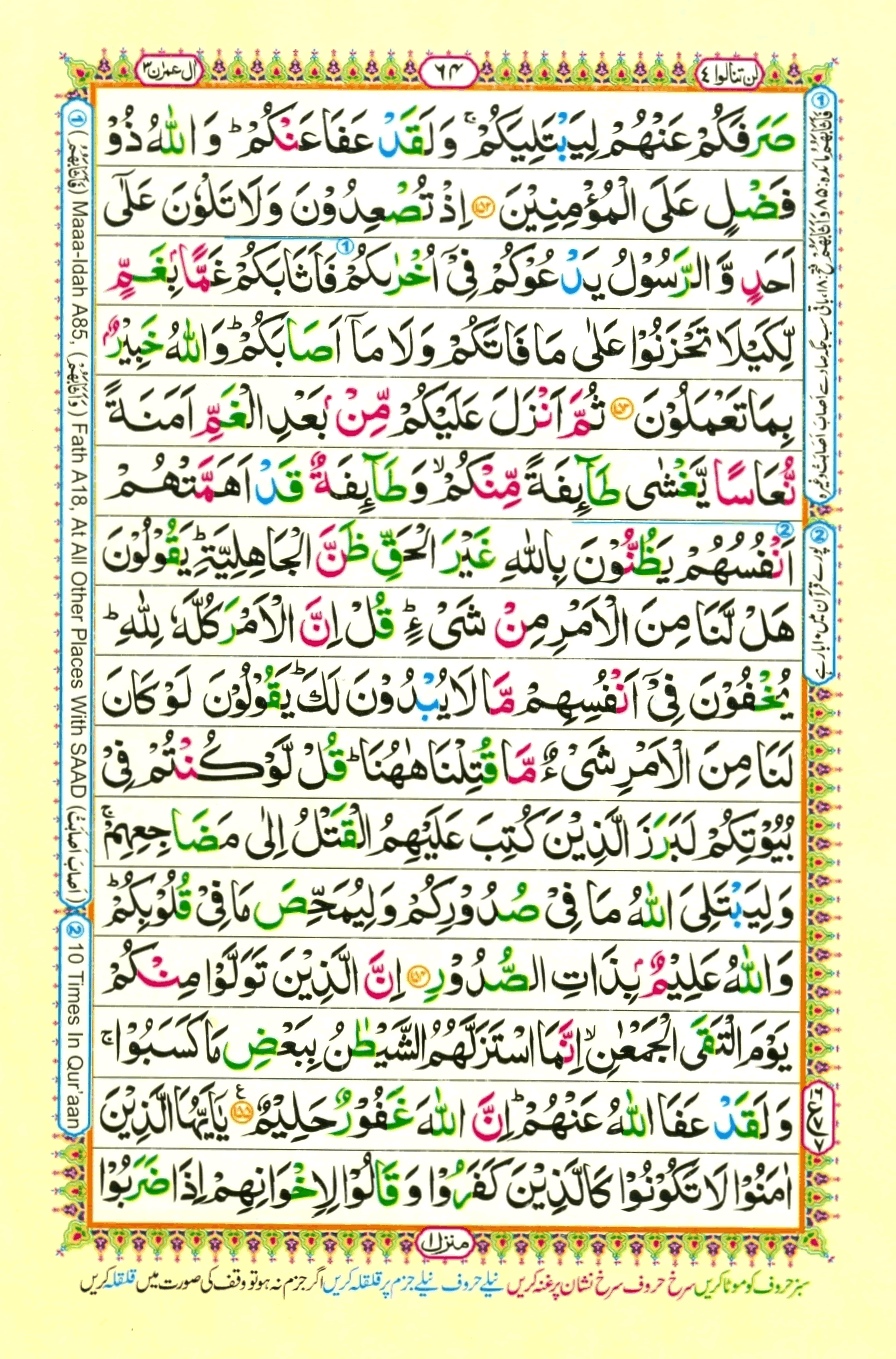 لن تنالوا ٤
٦٤
ال عمرٰن ٣
صَرَفَكُمْ عَنْهُمْ لِيَبْتَلِيَكُمْ ۚ وَلَقَدْ عَفَا عَنْكُمْ ؕ وَاللّٰهُ ذُوْ
فَضْلٍ عَلَى الْمُؤْمِنِيْنَ ﴿۱۵۲﴾ اِذْ تُصْعِدُوْنَ وَلَا تَلْوٗنَ عَلٰٓى
اَحَدٍ وَّالرَّسُوْلُ يَدْعُوْكُمْ فِىْۤ اُخْرٰىكُمْ فَاَثَابَكُمْ غَمًّۢا بِغَمٍّ
لِّكَيْلَا تَحْزَنُوْا عَلٰى مَا فَاتَكُمْ وَلَا مَاۤ اَصَابَكُمْ ؕ وَاللّٰهُ خَبِيْرٌۢ
بِمَا تَعْمَلُوْنَ ﴿۱۵۳﴾ ثُمَّ اَنْزَلَ عَلَيْكُمْ مِّنْۢ بَعْدِ الْغَمِّ اَمَنَةً
نُّعَاسًا يَّغْشٰى طَآئِفَةً مِّنْكُمْ ۙ وَطَآئِفَةٌ قَدْ اَهَمَّتْهُمْ
اَنْفُسُهُمْ يَظُنُّوْنَ بِاللّٰهِ غَيْرَ الْحَقِّ ظَنَّ الْجَاهِلِيَّةِ ؕ يَقُوْلُوْنَ
هَلْ لَّنَا مِنَ الْاَمْرِ مِنْ شَىْءٍ ؕ قُلْ اِنَّ الْاَمْرَ كُلَّهٗ لِلّٰهِ ؕ
يُخْفُوْنَ فِىْۤ اَنْفُسِهِمْ مَّا لَا يُبْدُوْنَ لَكَ ؕ يَقُوْلُوْنَ لَوْ كَانَ
لَنَا مِنَ الْاَمْرِ شَىْءٌ مَّا قُتِلْنَا هٰهُنَا ؕ قُلْ لَّوْ كُنْتُمْ فِىْ
بُيُوْتِكُمْ لَبَرَزَ الَّذِيْنَ كُتِبَ عَلَيْهِمُ الْقَتْلُ اِلٰى مَضَاجِعِهِمْ ۚ
وَلِيَبْتَلِىَ اللّٰهُ مَا فِىْ صُدُوْرِكُمْ وَلِيُمَحِّصَ مَا فِىْ قُلُوْبِكُمْ ؕ
وَاللّٰهُ عَلِيْمٌۢ بِذَاتِ الصُّدُوْرِ ﴿۱۵۴﴾ اِنَّ الَّذِيْنَ تَوَلَّوْا مِنْكُمْ
يَوْمَ الْتَقَى الْجَمْعٰنِ ۙ اِنَّمَا اسْتَزَلَّهُمُ الشَّيْطٰنُ بِبَعْضِ مَا كَسَبُوْا ۚ
وَلَقَدْ عَفَا اللّٰهُ عَنْهُمْ ؕ اِنَّ اللّٰهَ غَفُوْرٌ حَلِيْمٌ ﴿۱۵۵﴾ يٰۤاَيُّهَا الَّذِيْنَ
اٰمَنُوْا لَا تَكُوْنُوْا كَالَّذِيْنَ كَفَرُوْا وَقَالُوْا لِاِخْوَانِهِمْ اِذَا ضَرَبُوْا
منزل ۱
سبز حروف کو موٹا کریں سرخ حروف سرخ نشان پر غنہ کریں نیلے حروف نیلے جزم پر قلقلہ کریں اگر جزم نہ ہو تو وقف کی صورت میں قلقلہ کریں
① (فَاَثَابَهُمُ) Maaa-Idah A85, (وَاَثَابَهُمْ) Fath A18, At All Other Places With SAAD (اَصَابَ اَصَابَتْ)
② 10 Times In Qur'aan
① فَاَثَابَهُمُ مائدہ: ۸۵ وَاَثَابَهُمْ فتح: ۱۸، باقی سب جگہ صاد سے اَصَابَ اَصَابَتْ وغیرہ
② پورے قرآن میں ۱۰ بار ہے